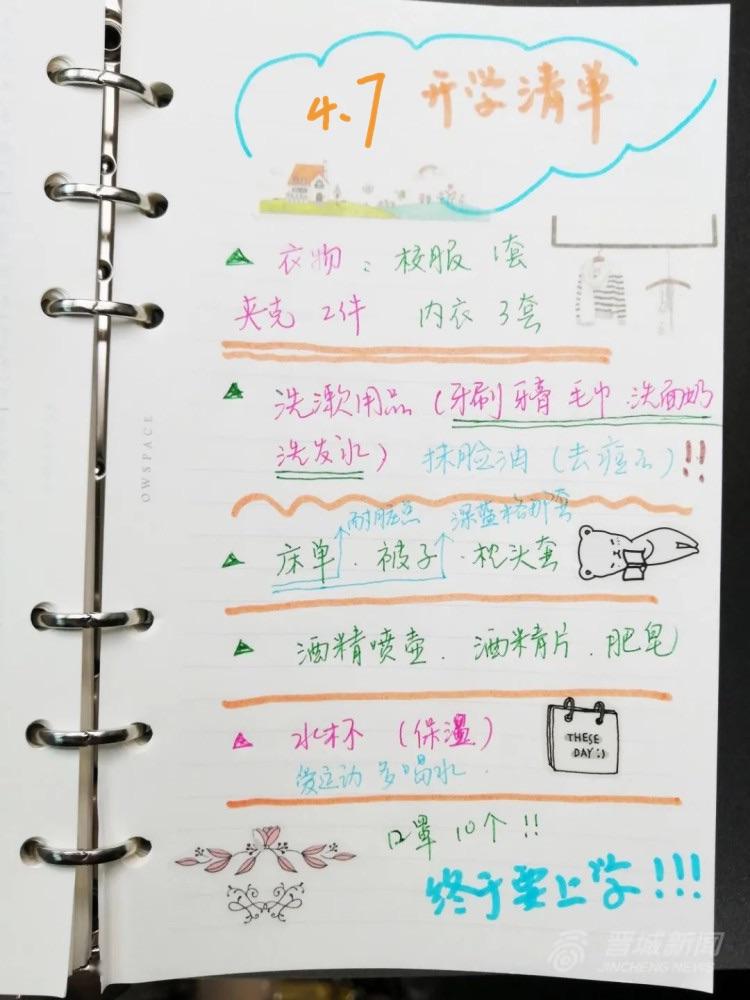 4.7 开学清单
衣物：校服 1套
夹克 2件 内衣 3套
洗漱用品（牙刷 牙膏 毛巾 洗面奶
洗发水） 抹脸油（去痘的）!!
耐脏点 深蓝格那套
床单．被子．枕头套
酒精喷壶．酒精片．肥皂
水杯（保温）
爱运动 多喝水．
THESE
DAY :)
口罩 10个!!
终于要上学!!!
OWSPACE
晋城新闻
JINCHENG NEWS